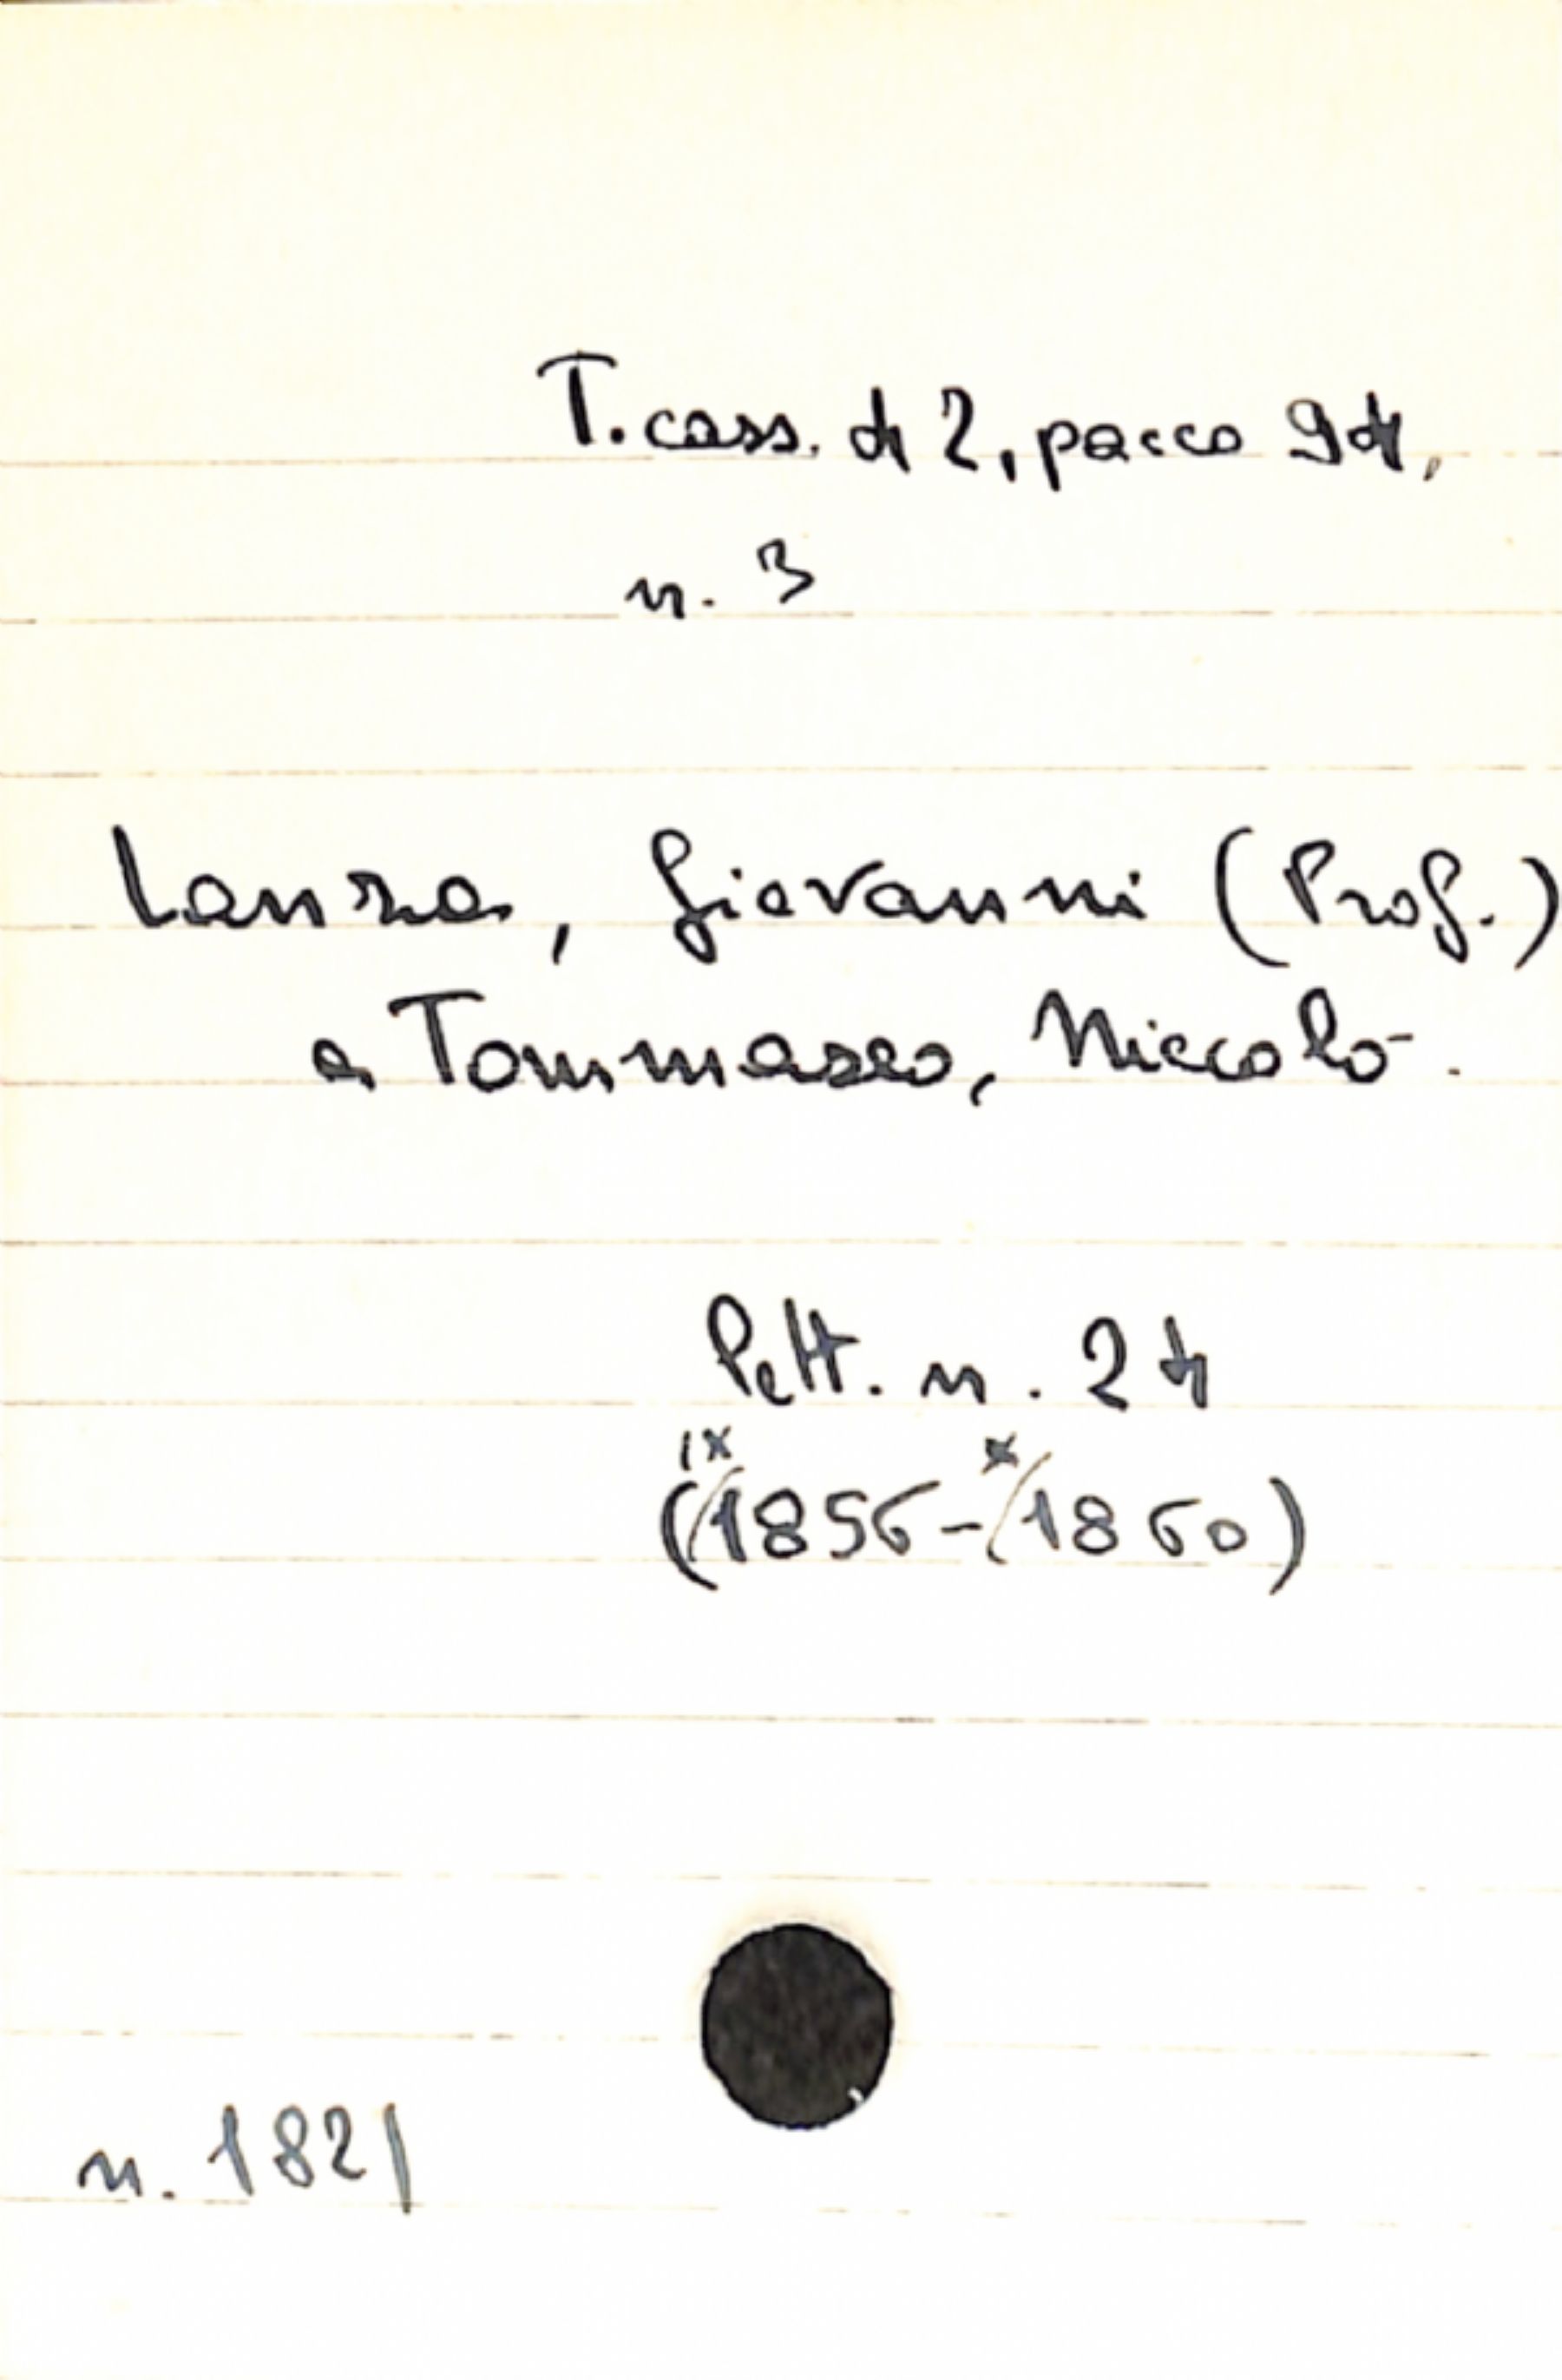 T. cass. 42, pacco 94,
n. 3
Lanza, Giovanni (Prof.)
a Tommaseo, Niccolò.
Lett. n. 24
(IX/1856-X/1860)
n. 1821